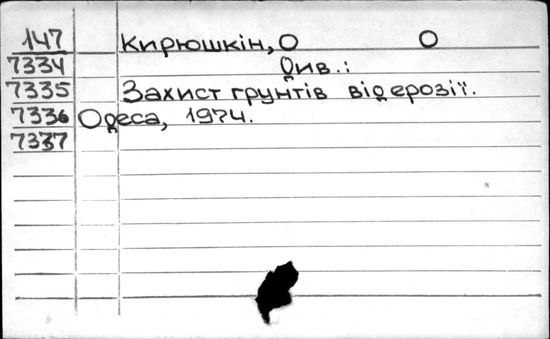 147 Кирюшкін, О О
7334 Див.:
7335 Захист грунтів від ерозії.
7336 Одеса, 1974.
7337